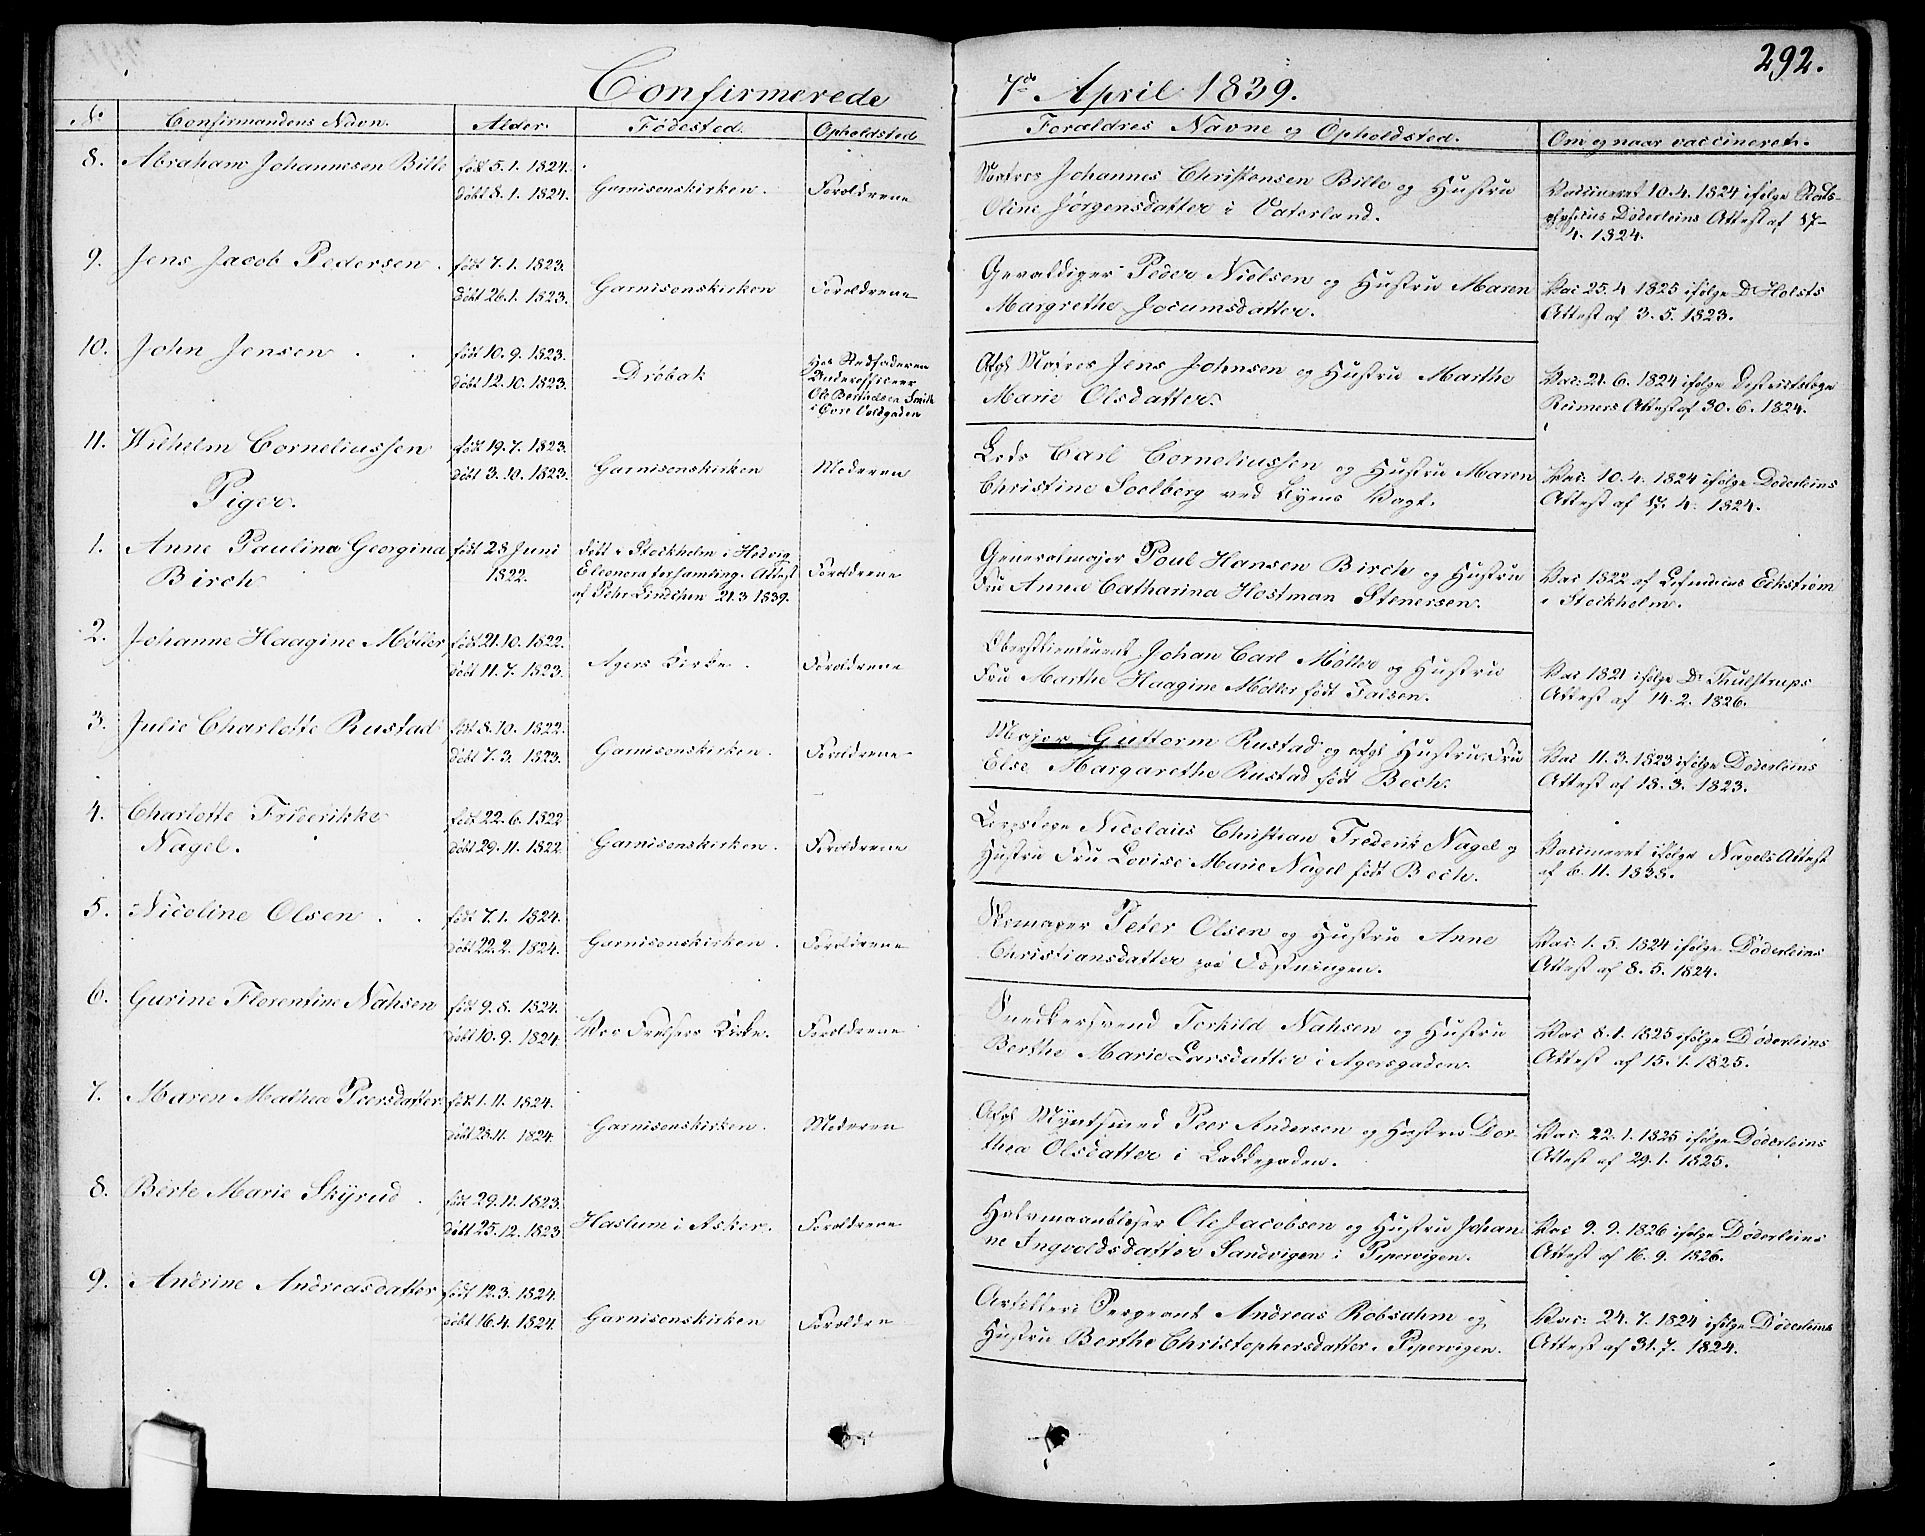 292.
Confirmerede 7de April 1839.
No Confirmandens Navn. Alder. Fødested. Opholdsted Forældres Navne og Opholdsted. Om og naar vaccineret.
8. Abraham Johannesen Bille født 5.1.1824. Johannes Christensen Bille og Hustru
døbt 8.1.1824. Garnisonskirken. Forældrene Oline Jørgensdatter i Vaterland. Vaccineret 10.4.1824 ifølge Stads-
physicus Døderleins Attest af 17-
4.1824.
9. Jens Jacob Pedersen. født 7.1.1823. Gevaldiger Peder Nielsen og Hustru Maren
døbt 26.1.1823. Garnisonskirken Forældrene Margrethe Jocumsdatter. Vac 25.4 1825 ifølge Dr Holsts
Attest af 3.5.1823.
10. John Jensen født 10.9.1823. Hos Stedfaderen Afgl Jens Johnsen og Hustru Marthe
døbt 12.10.1823. Drøbak Underofficeer Marie Olsdatter. Vac: 21.6.1824 ifølge
Ole Smith Reimers Attest af 30.6.1824.
i Øvre Voldgaden
11. Wilhelm Corneliussen født 19.7.1823. Carl Corneliussen og Hustru Maren
døbt 3.10.1823. Garnisonskirken Moderen Christine Soelberg ved Byens Vagt. Vac: 10.4.1824 ifølge Døderleins
Attest af 17.4.1824.
Piger.
1. Anne Paulina Georgina født 28 Juni født i Stockholm i Hedvig Generalmajor Poul Hansen Birch og Hustru
Birch 1822. Eleonora forsamling. Attest Forældrene Fru Anna Catharina Hostman Stenersen. Vac 1822 af Eckstrøm
af Pehr Lindehn 21.3 1839. i Stockholm.
2. Johanne Haagine Møller født 21.10.1822. Oberstlieutenant Johan Carl Møller og Hustru
døbt 11.7.1823. Agers Kirke. Forældrene Fru Marthe Haagine Møller født Faisen. Vac 1821 ifølge Dr Thulstrups
Attest af 14.2.1826.
3. Julie Charlotte Rustad født 8.10.1822. Major Guttorm Rustad og afgl Hustru Fru
døbt 7.3.1823. Garnisonskirken. Forældrene Else Margarethe Rustad født Bech. Vac 11.3.1823 ifølge Døderleins
Attest af 18.3.1823.
4. Charlotte Friderikke født 22.6.1822 Nicolaus Christian Frederik Nagel og
Nagel. døbt 29.11.1822 Garnisonskirken. Forældrene Hustru Fru Lovise Marie Nagel født Bech. Vaccineret ifølge Nagels Attest
af 6.11.1838.
5. Nicoline Olsen født 7.1.1824. Skomager Peter Olsen og Hustru Anne
døbt 22.2.1824. Garnisonskirken. Forældrene Christiansdatter paa Fæstningen. Vac: 1.5.1824 ifølge Døderleins
Attest af 8.5.1824.
6. Gurine Florentine Nahsen født 9.8.1824. Snedkersvend Torkild Nahsen og Hustru
døbt 10.9.1824. Vor Frelsers Kirke. Forældrene Berthe Marie Larsdatter i Agersgaden. Vac 8.1.1825 ifølge Døderleins
Attest af 15.1.1825.
7. Maren Mathea Peersdatter født 1.11.1824. Afgl Myntsmed Peer Andersen og Hustru Dor-
døbt 25.11.1824. Garnisonskirken. Moderen thea Olsdatter i Lakkegaden. Vac: 22.1.1825 ifølge Døderleins
Attest af 29.1.1825.
8. Berte Marie Skÿrud født 29.11.1823. Halvmaanblæser Ole Jacobsen og Hustru Johan
døbt 25.12.1823 Haslum i Asker. Forældrene ne Ingvoldsdatter Sandvigen i Pipervigen. Vac 9.9.1826 ifølge Døderleins
Attest af 16.9.1826.
9. Andrine Andreasdatter født 12.3.1824. Artilleri Sergeant Andreas Robsahm og
døbt 16.4.1824. Garnisonskirken Forældrene Hustru Berthe Christophersdatter i Pipervigen. Vac: 24.7.1824 ifølge Døderleins
Attest af 31.7.1824.